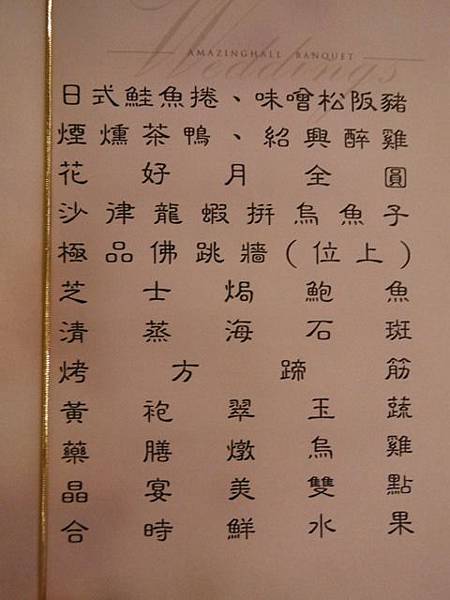 Weddings
AMAZINGHALL BANQUET
日式鮭魚捲、味噌松阪豬
煙燻茶鴨、紹興醉雞
花好月全圓
沙律龍蝦拼烏魚子
極品佛跳牆(位上)
芝士焗鮑魚
清蒸海石斑
烤方蹄筋
黃袍翠玉蔬
藥膳燉烏雞
晶宴美雙點
合時鮮水果